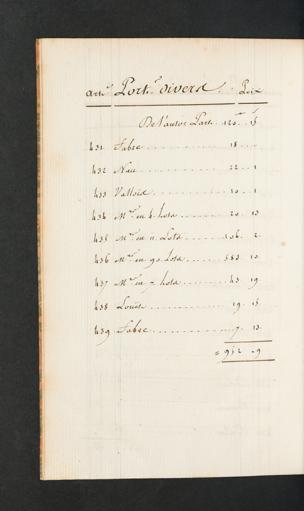 art.s Port.s divers Prix
De l'autre Part. 120 15
431 Fabre 18 "
432 Nau 22 1
433 Vallois 20 1
434 M.r en 4. lots 20 13
435 M.r en 11. Lots 206 2
436 M.r en 90. Lots 583 10
437 M.r en 7. lots 43 19
438 Louis 19 15
439 Fabre 7 13
952 9